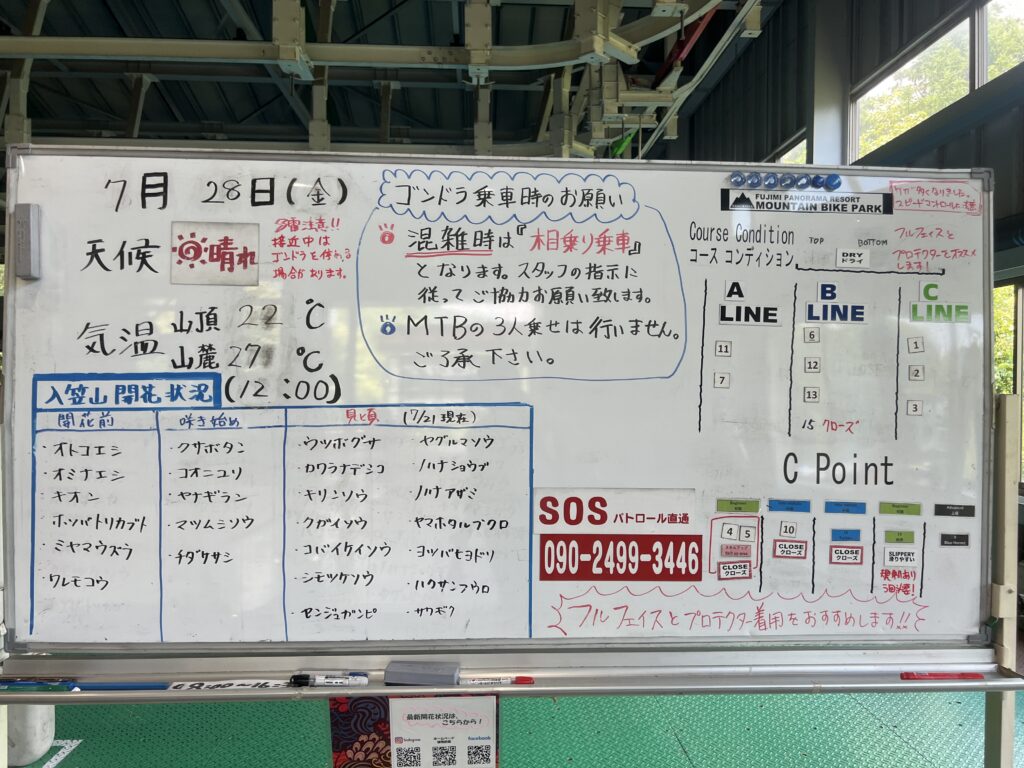 7月 28日(金)
天候
晴れ
雷注意!!
接近中は
ゴンドラを休止る
場合があります。
気温 山頂 22℃
山麓 27℃
(12:00)
ゴンドラ乗車時のお願い
混雑時は『相乗り乗車』
となります。スタッフの指示に
従ってご協力お願い致します。
MTBの3人乗せは行いません。
ご了承下さい。
入笠山開花状況
開花前
・オトコエシ
・オミナエシ
・キオン
・ホソバトリカブト
・ミヤマウズラ
・ワレモコウ
咲き始め
・クサボタン
・コオニユリ
・ヤナギラン
・マツムシソウ
・チダケサシ
見ど頃 (7/21現在)
・ウツボグサ
・カワラナデシコ
・キリンソウ
・クガイソウ
・コバイケイソウ
・シモツケソウ
・センジュガンピ
・ヤグルマソウ
・ノハナショウブ
・ノハラアザミ
・ヤマホタルブクロ
・ヨツバヒヨドリ
・ハクサンフウロ
・サワギク
FUJIMI PANORAMA RESORT
MOUNTAIN BIKE PARK
多くなりました。
スピードコントロールに注意
Course Condition
コース コンディション
TOP
BOTTOM
DRY
ドライ
フルフェイスと
プロテクターでオススメ
します!
A
LINE
11
7
B
LINE
6
12
13
15 クローズ
C
LINE
1
2
3
C Point
SOS パトロール直通
090-2499-3446
4
5
CLOSE
クローズ
10
CLOSE
クローズ
CLOSE
クローズ
SLIPPERY
滑りやすい
フルフェイスとプロテクター着用をおすすめします!!
最新開花状況は、
こちらから!
Instagram
facebook